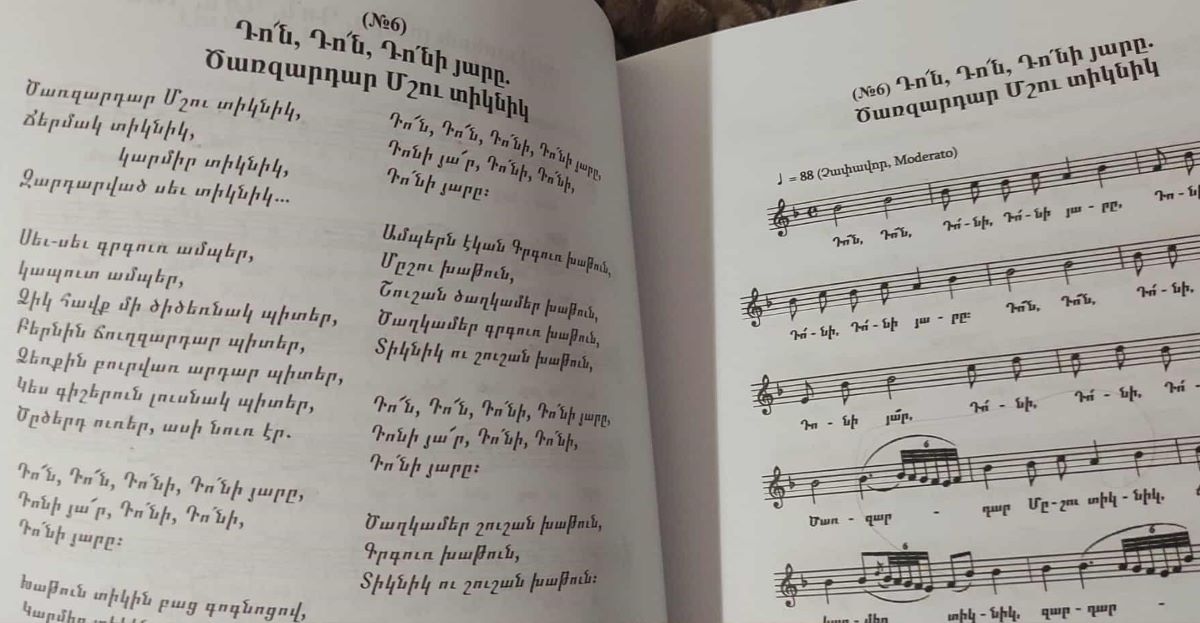 (№6)
Դո՜ն, Դո՜ն, Դո՛նի յարը.
Ծառզարդար Մշու տիկնիկ
Ծառզարդար Մշու տիկնիկ,
Ճերմակ տիկնիկ,
կարմիր տիկնիկ,
Զարդարված սեւ տիկնիկ...
Սեւ-սեւ գրգուռ ամպեր,
կապուտ ամպեր,
Ձիկ հավք մի ծիծեռնակ պիտեր,
Բերնին ճուղզարդար պիտեր,
Ձեռքին բուրվառ արդար պիտեր,
Կես գիշերուն լուսնակ պիտեր,
Ծըծերդ ուռեր, ասի նուռ էր.
Դո՜ն, Դո՜ն, Դո՛նի, Դո՛նի յարը,
Դոնի յա՜ր, Դո՛նի, Դո՛նի,
Դո՛նի յարը։
Խաթուն տիկին բաց գոգնոցով,
Դո՜ն, Դո՜ն, Դո՛նի, Դո՛նի յարը,
Դոնի յա՜ր, Դո՛նի, Դո՛նի,
Դո՛նի յարը։
Ամպերն էկան Գրգուռ խաթուն,
Մըշու խաթուն,
Շուշան ծաղկամեր խաթուն,
Ծաղկամեր գրգուռ խաթուն,
Տիկնիկ ու շուշան խաթուն,
Դո՜ն, Դո՜ն, Դո՛նի, Դո՛նի յարը,
Դոնի յա՜ր, Դո՛նի, Դո՛նի,
Դո՛նի յարը։
Ծաղկամեր շուշան խաթուն,
Գրգուռ խաթուն,
Տիկնիկ ու շուշան խաթուն։
(№6) Դո՜ն, Դո՜ն, Դո՛նի յարը.
Ծառզարդար Մշու տիկնիկ
♩ = 88 (Չափավոր, Moderato)
Դո՜ն, Դո՜ն, Դո՛-նի, Դո՛-նի յա - րը, Դո - նի
Դո՛ - նի, Դո՛ - նի յա - րը։ Դո՜ն, Դո՜ն, Դո՛ - նի,
Դո - նի յա՜ր, Դո՛ - նի, Դո՛ - նի, Դո՛
Ծառ - զար - դար Մը-շու տիկ - նիկ,
կար - միր տիկ - նիկ, զար - դար -